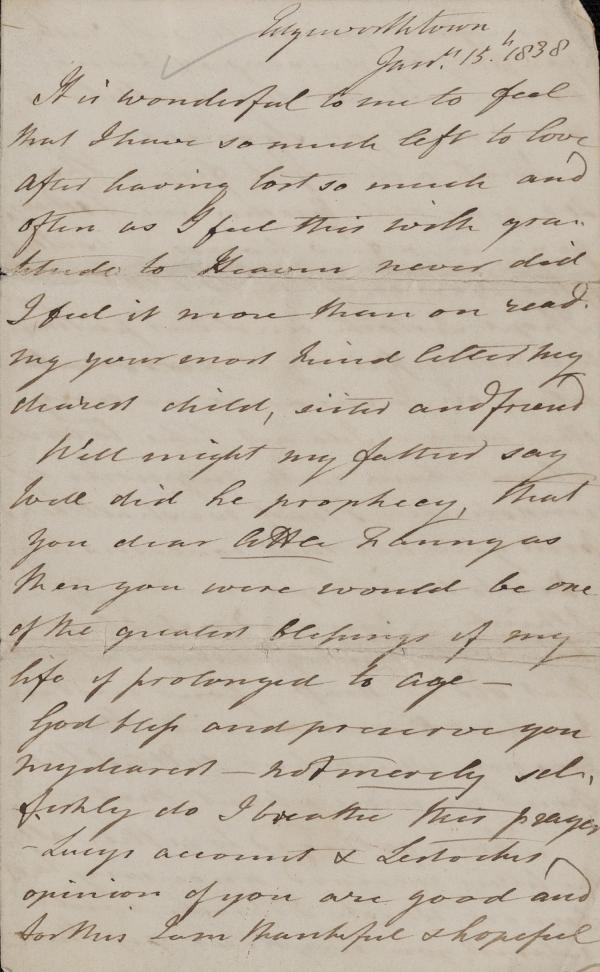 Edgeworthstown
Jan.y 15.h 1838
It is wonderful to me to feel
that I have so much left to love
after having lost so much and
often as I feel this with gra-
titude to Heaven never did
I feel it more than on read-
ing your most kind letter my
dearest child, sister and friend
Well might my father say
Well did he prophecy, that
you dear little Fanny as
then you were would be one
of the greatest blessings of my
life if prolonged to age —
God bless and preserve you
my dearest — not merely sel-
fishly do I breathe this prayer
- Lucy's account & Lestock's
opinion of you are good and
for this I am thankful & hopeful